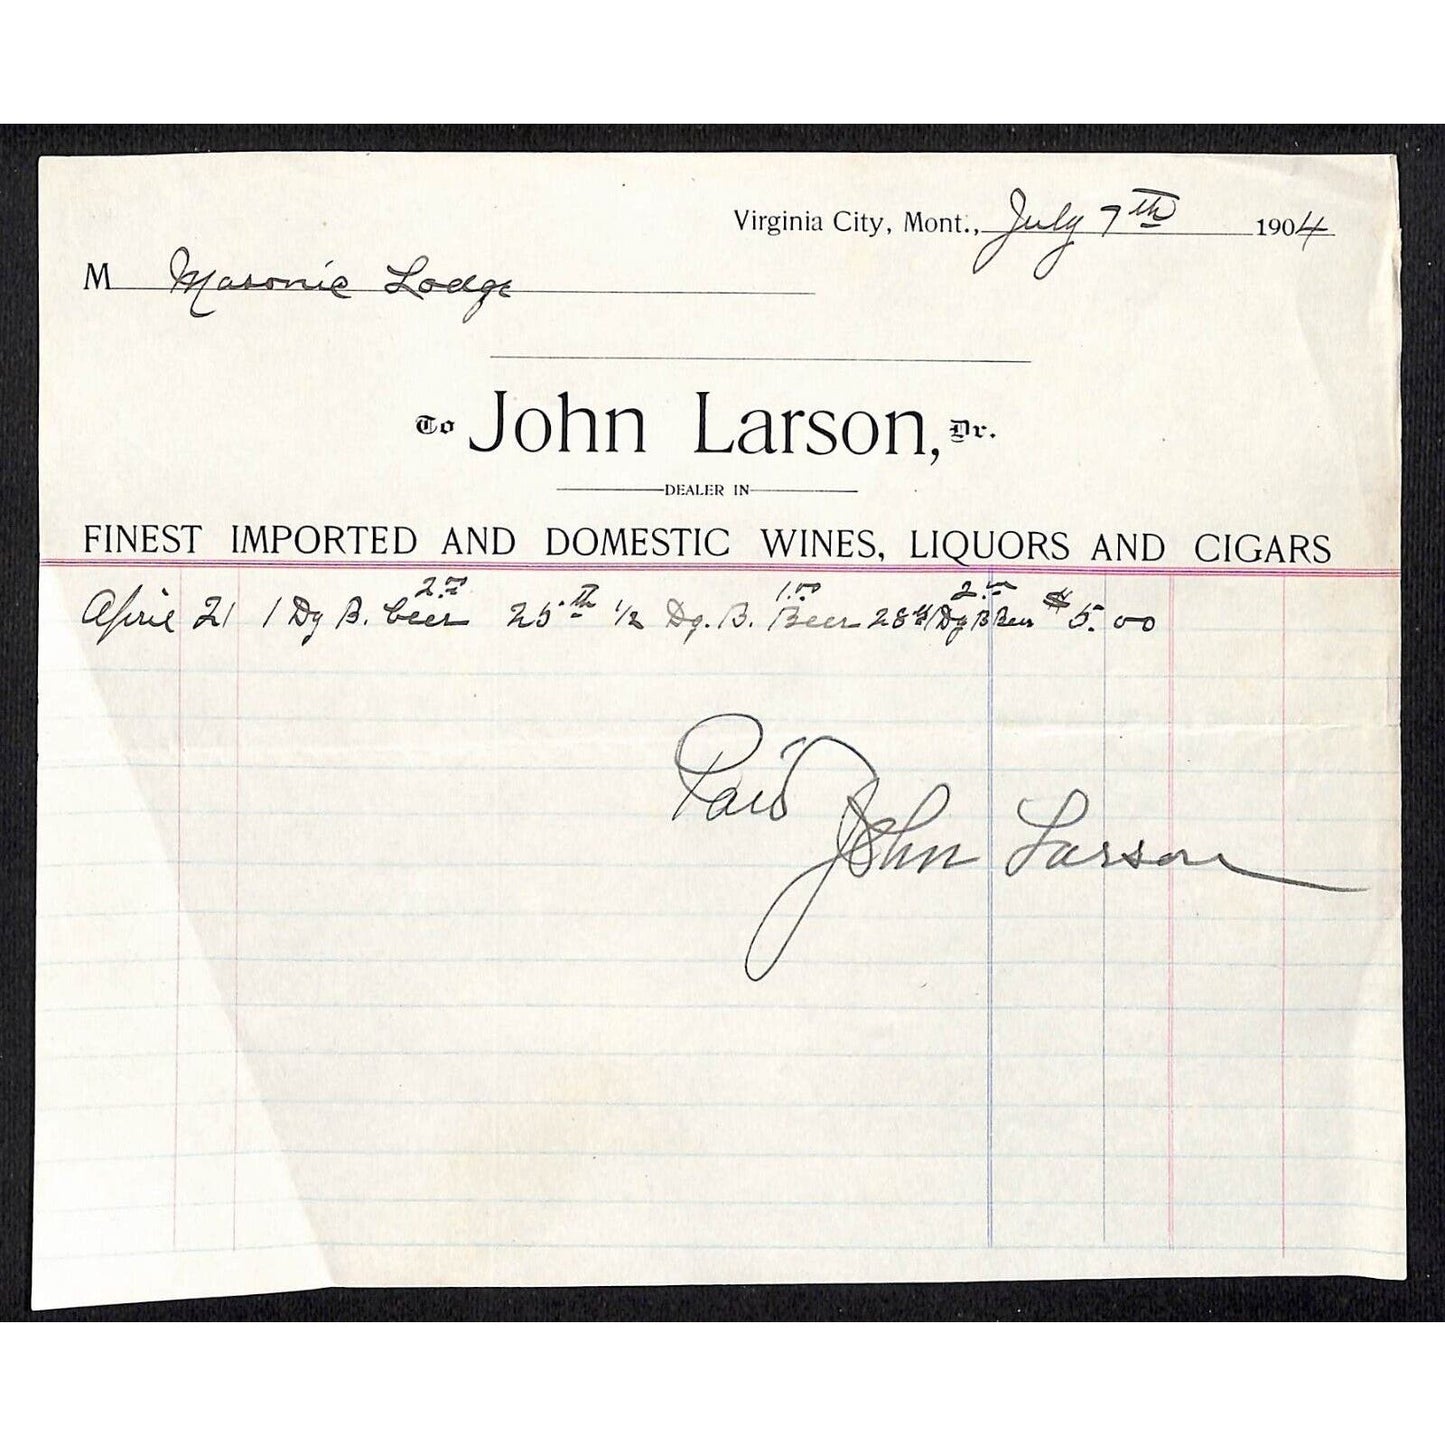 Virginia City, Mont., July 7th 1904
M Masonic Lodge
To John Larson, Dr.
DEALER IN
FINEST IMPORTED AND DOMESTIC WINES, LIQUORS AND CIGARS
2.00 1.00 2.00
April 21 1 Dz B. beer 25th 1/2 Dz. B. Beer 28th 1 Dz B Beer $5.00
Paid
John Larson